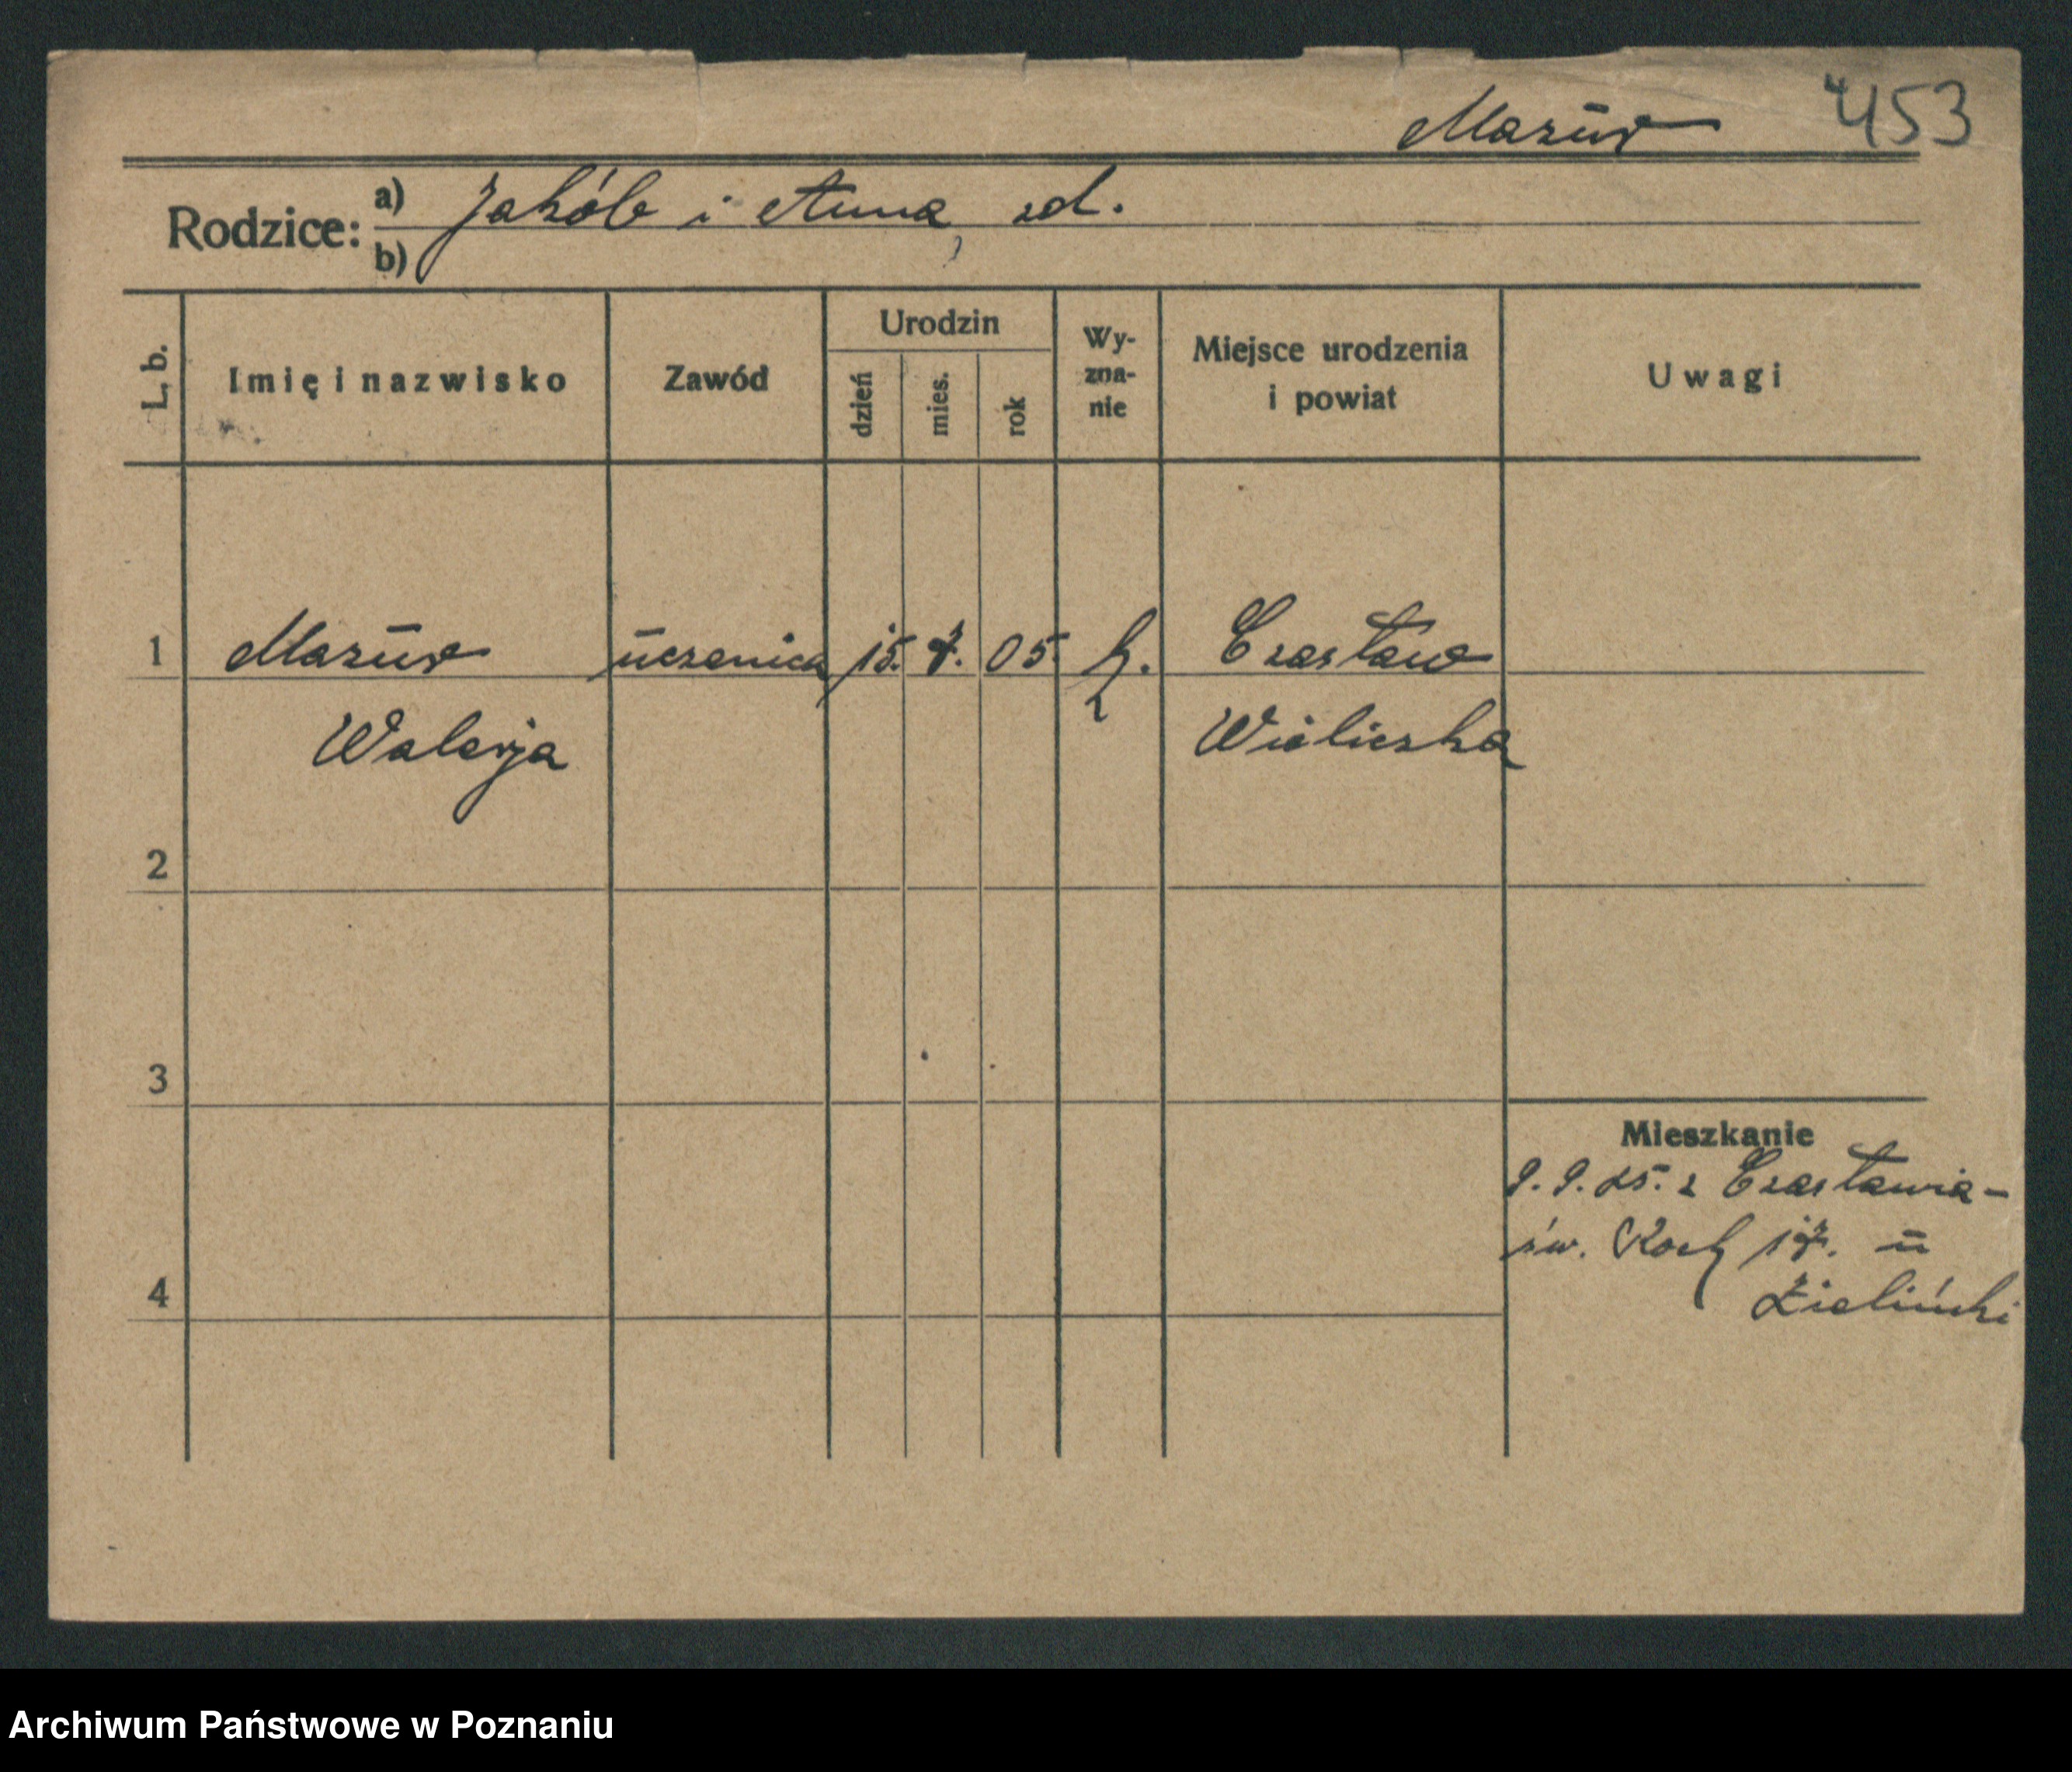 Mazur 453
Rodzice: a) Jakób i Anna, zd.
b)
L. b.
Imię i nazwisko
Zawód
Urodzin
dzień
mies.
rok
Wy-
zna-
nie
Miejsce urodzenia
i powiat
Uwagi
1 Mazur uczenica 15. 7. 05. k. Czasław
Walerja Wieliczka
2
3
4
Mieszkanie
9. 9. 25. z Czasławia-
św. Roch 17. u
Zieliński
Archiwum Państwowe w Poznaniu